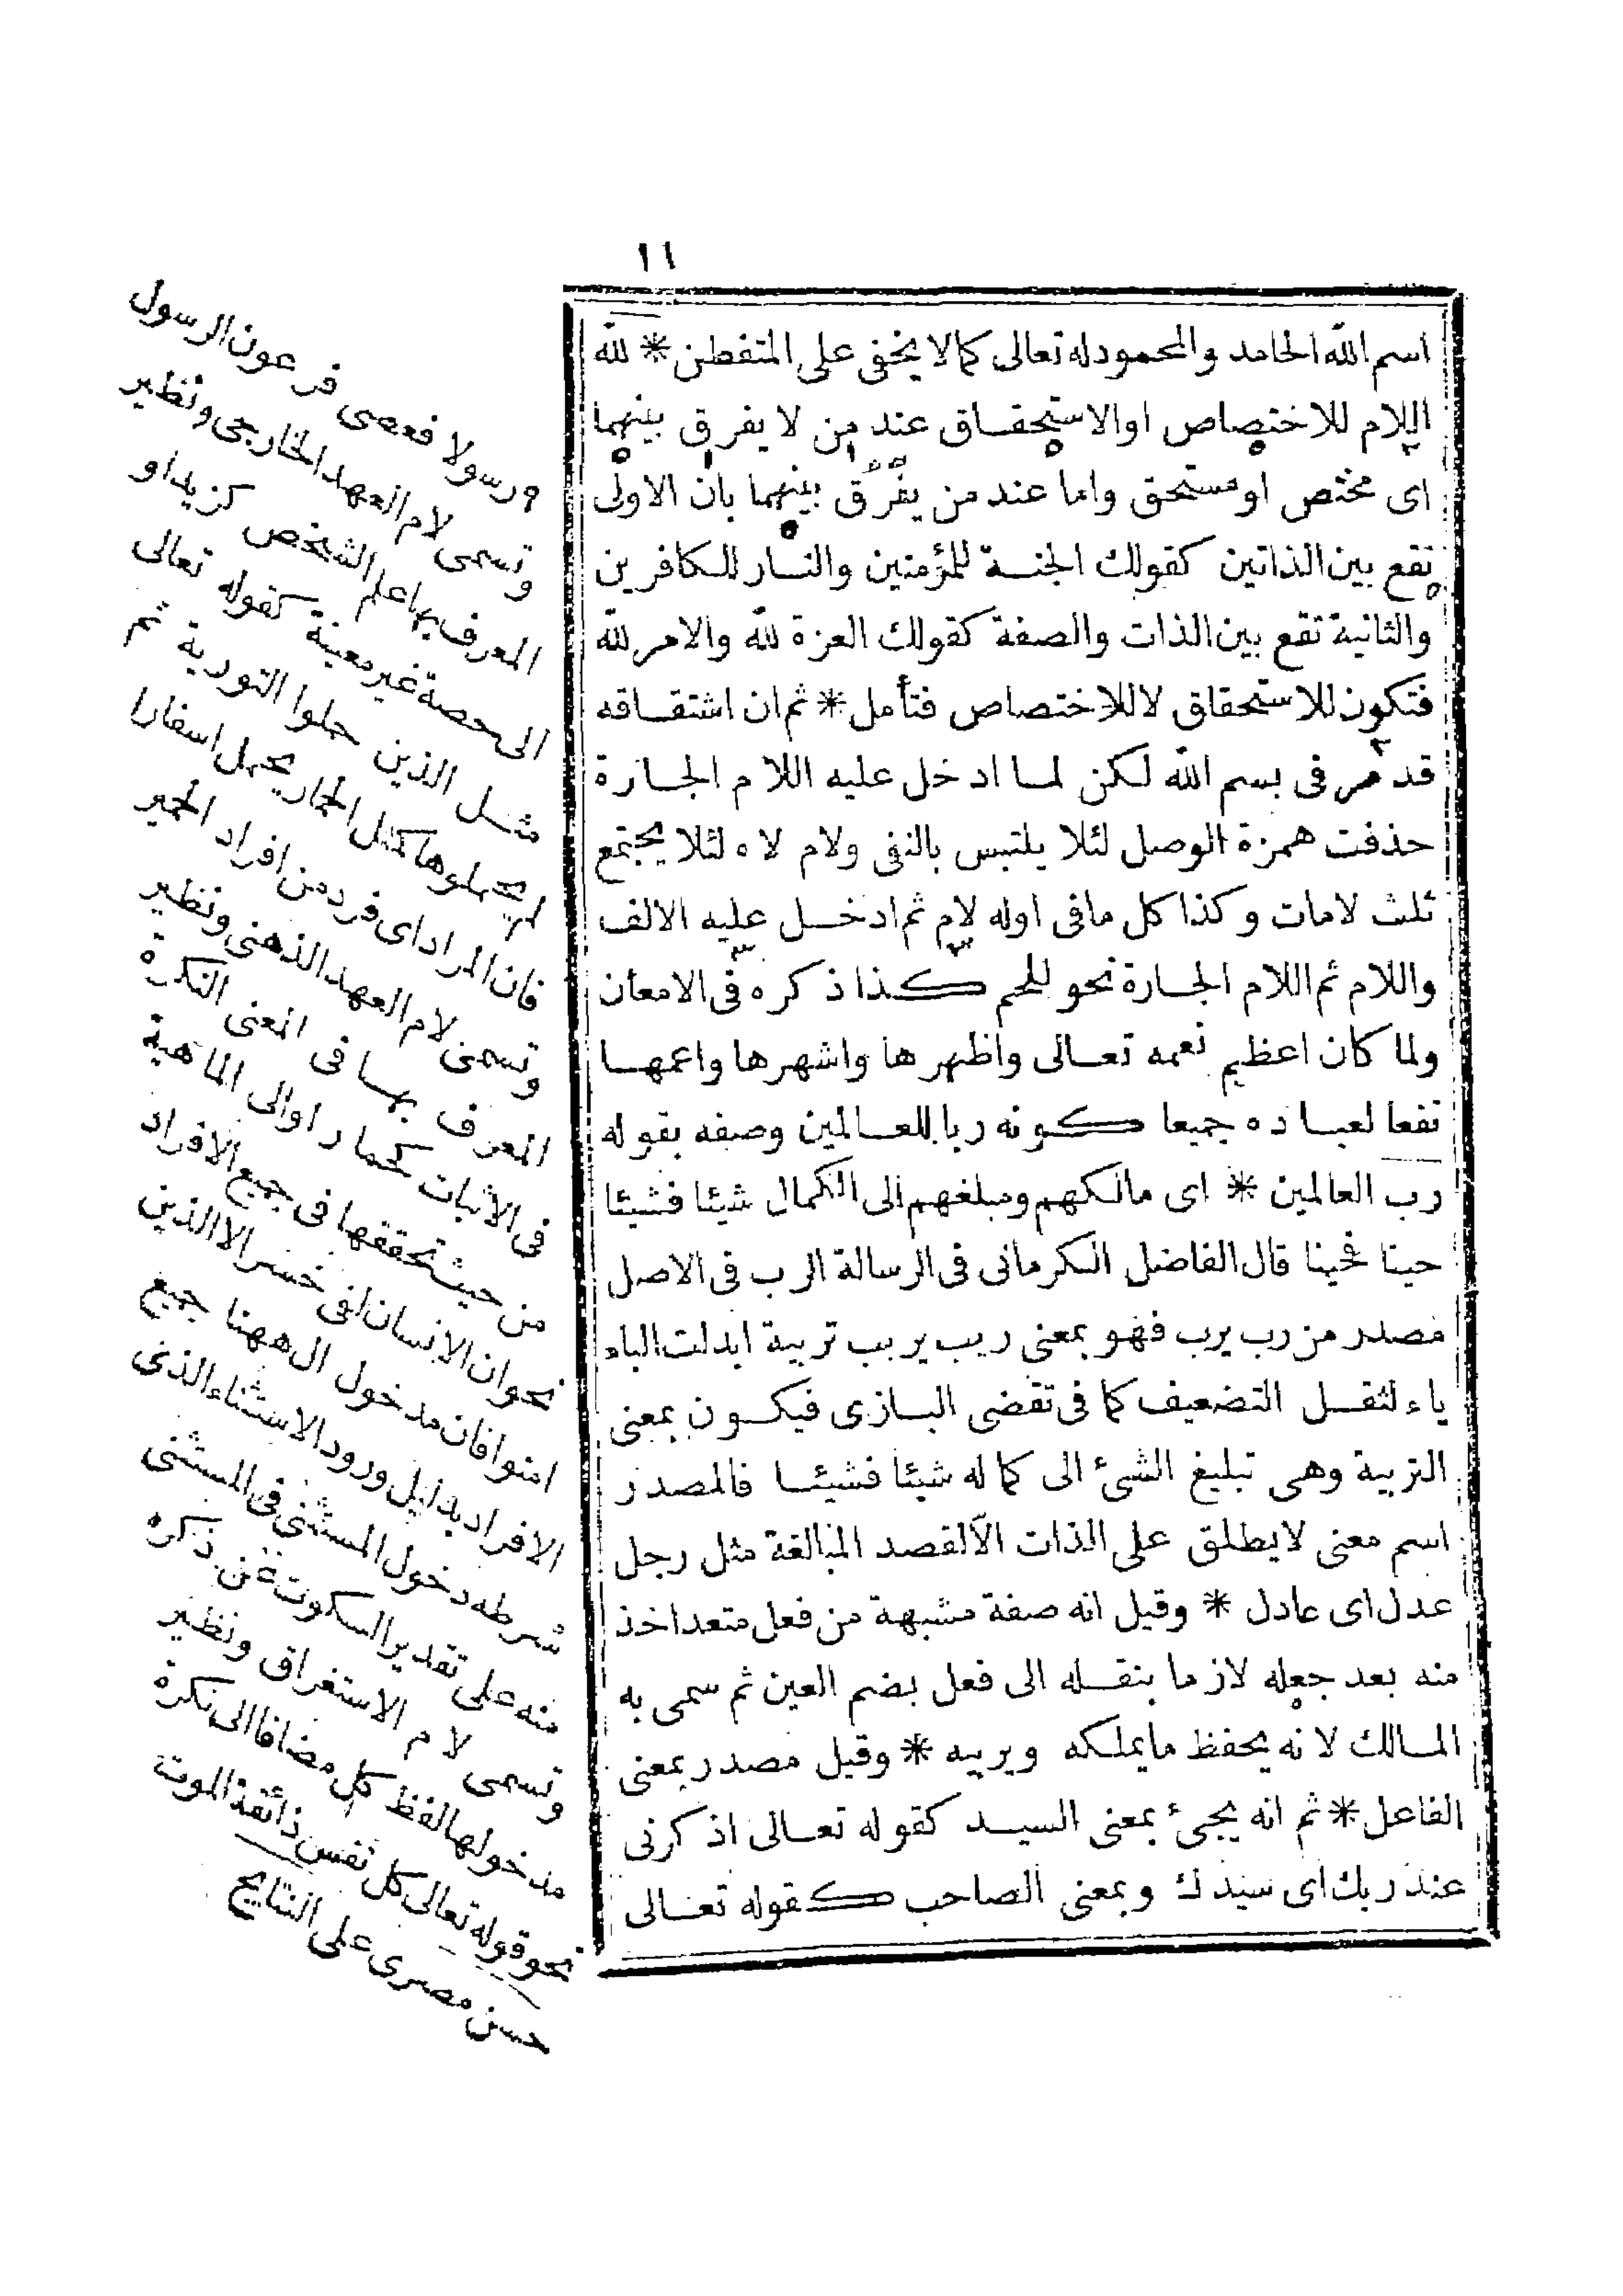 ١١
اسم الله الحامد والمحمود له تعالى كما لا يخفى على المتفطن * لله
اللام للاختصاص او الاستحقاق عند من لا يفرق بينهما
اى مختص او مستحق واما عند من يفرق بينهما بان الاولى
تقع بين الذاتين كقولك الجنة للمؤمنين والنار للكافرين
والثانية تقع بين الذات والصفة كقولك العزة لله والامر لله
فتكون للاستحقاق لا للاختصاص فتأمل * ثم ان اشتقاقه
قد مر فى بسم الله لكن لما ادخل عليه اللام الجارة
حذفت همزة الوصل لئلا يلتبس بالنفى ولام لاه لئلا يجتمع
ثلث لامات وكذا كل ما فى اوله لام ثم ادخل عليه الالف
واللام ثم اللام الجارة نحو للحم كذا ذكره فى الامعان
ولما كان اعظيم نعمه تعالى واظهرها واشهرها واعمها
نفعا لعباده جميعا كونه ربا للعالمين وصفه بقوله
رب العالمين * اى مالكهم ومبلغهم الى الكمال شيئا فشيئا
حينا فحينا قال الفاضل الكرمانى فى الرسالة الرب فى الاصل
مصدر من رب يرب فهو بمعنى ربب يربب تربية ابدلت الباء
ياء لثقل التضعيف كما فى تقضى البازى فيكون بمعنى
التربية وهى تبليغ الشئ الى كماله شيئا فشيئا فالمصدر
اسم معنى لا يطلق على الذات الا لقصد المبالغة مثل رجل
عدل اى عادل * وقيل انه صفة مشبهة من فعل متعد اخذ
منه بعد جعله لازما بنقله الى فعل بضم العين ثم سمى به
المالك لانه يحفظ ما يملكه ويربيه * وقيل مصدر بمعنى
الفاعل * ثم انه يجئ بمعنى السيد كقوله تعالى اذكرنى
عند ربك اى سيدك وبمعنى الصاحب كقوله تعالى
رسولا فعصى فرعون الرسول
وتسمى لام العهد الخارجى ونظير
المعرف بها علم الشخص كزيد او
الى حصة غير معينة كقوله تعالى
مثل الذين حملوا التورية ثم
لم يحملوها كمثل الحمار يحمل اسفارا
فان المراد اى فرد من افراد الحمير
وتسمى لام العهد الذهنى ونظير
المعرف بها فى المعنى النكرة
فى الاثبات كحمار او الى الماهية
من حيث تحققها فى جميع الافراد
نحو ان الانسان لفى خسر الا الذين
امنوا فان مدخول ال ههنا جميع
الافراد بدليل ورود الاستثناء الذى
شرطه دخول المستثنى فى المستثنى
منه على تقدير السكوت عن ذكره
وتسمى لام الاستغراق ونظير
مدخولها لفظ كل مضافا الى نكرة
نحو قوله تعالى كل نفس ذائقة الموت
حسن مصرى على النتايج